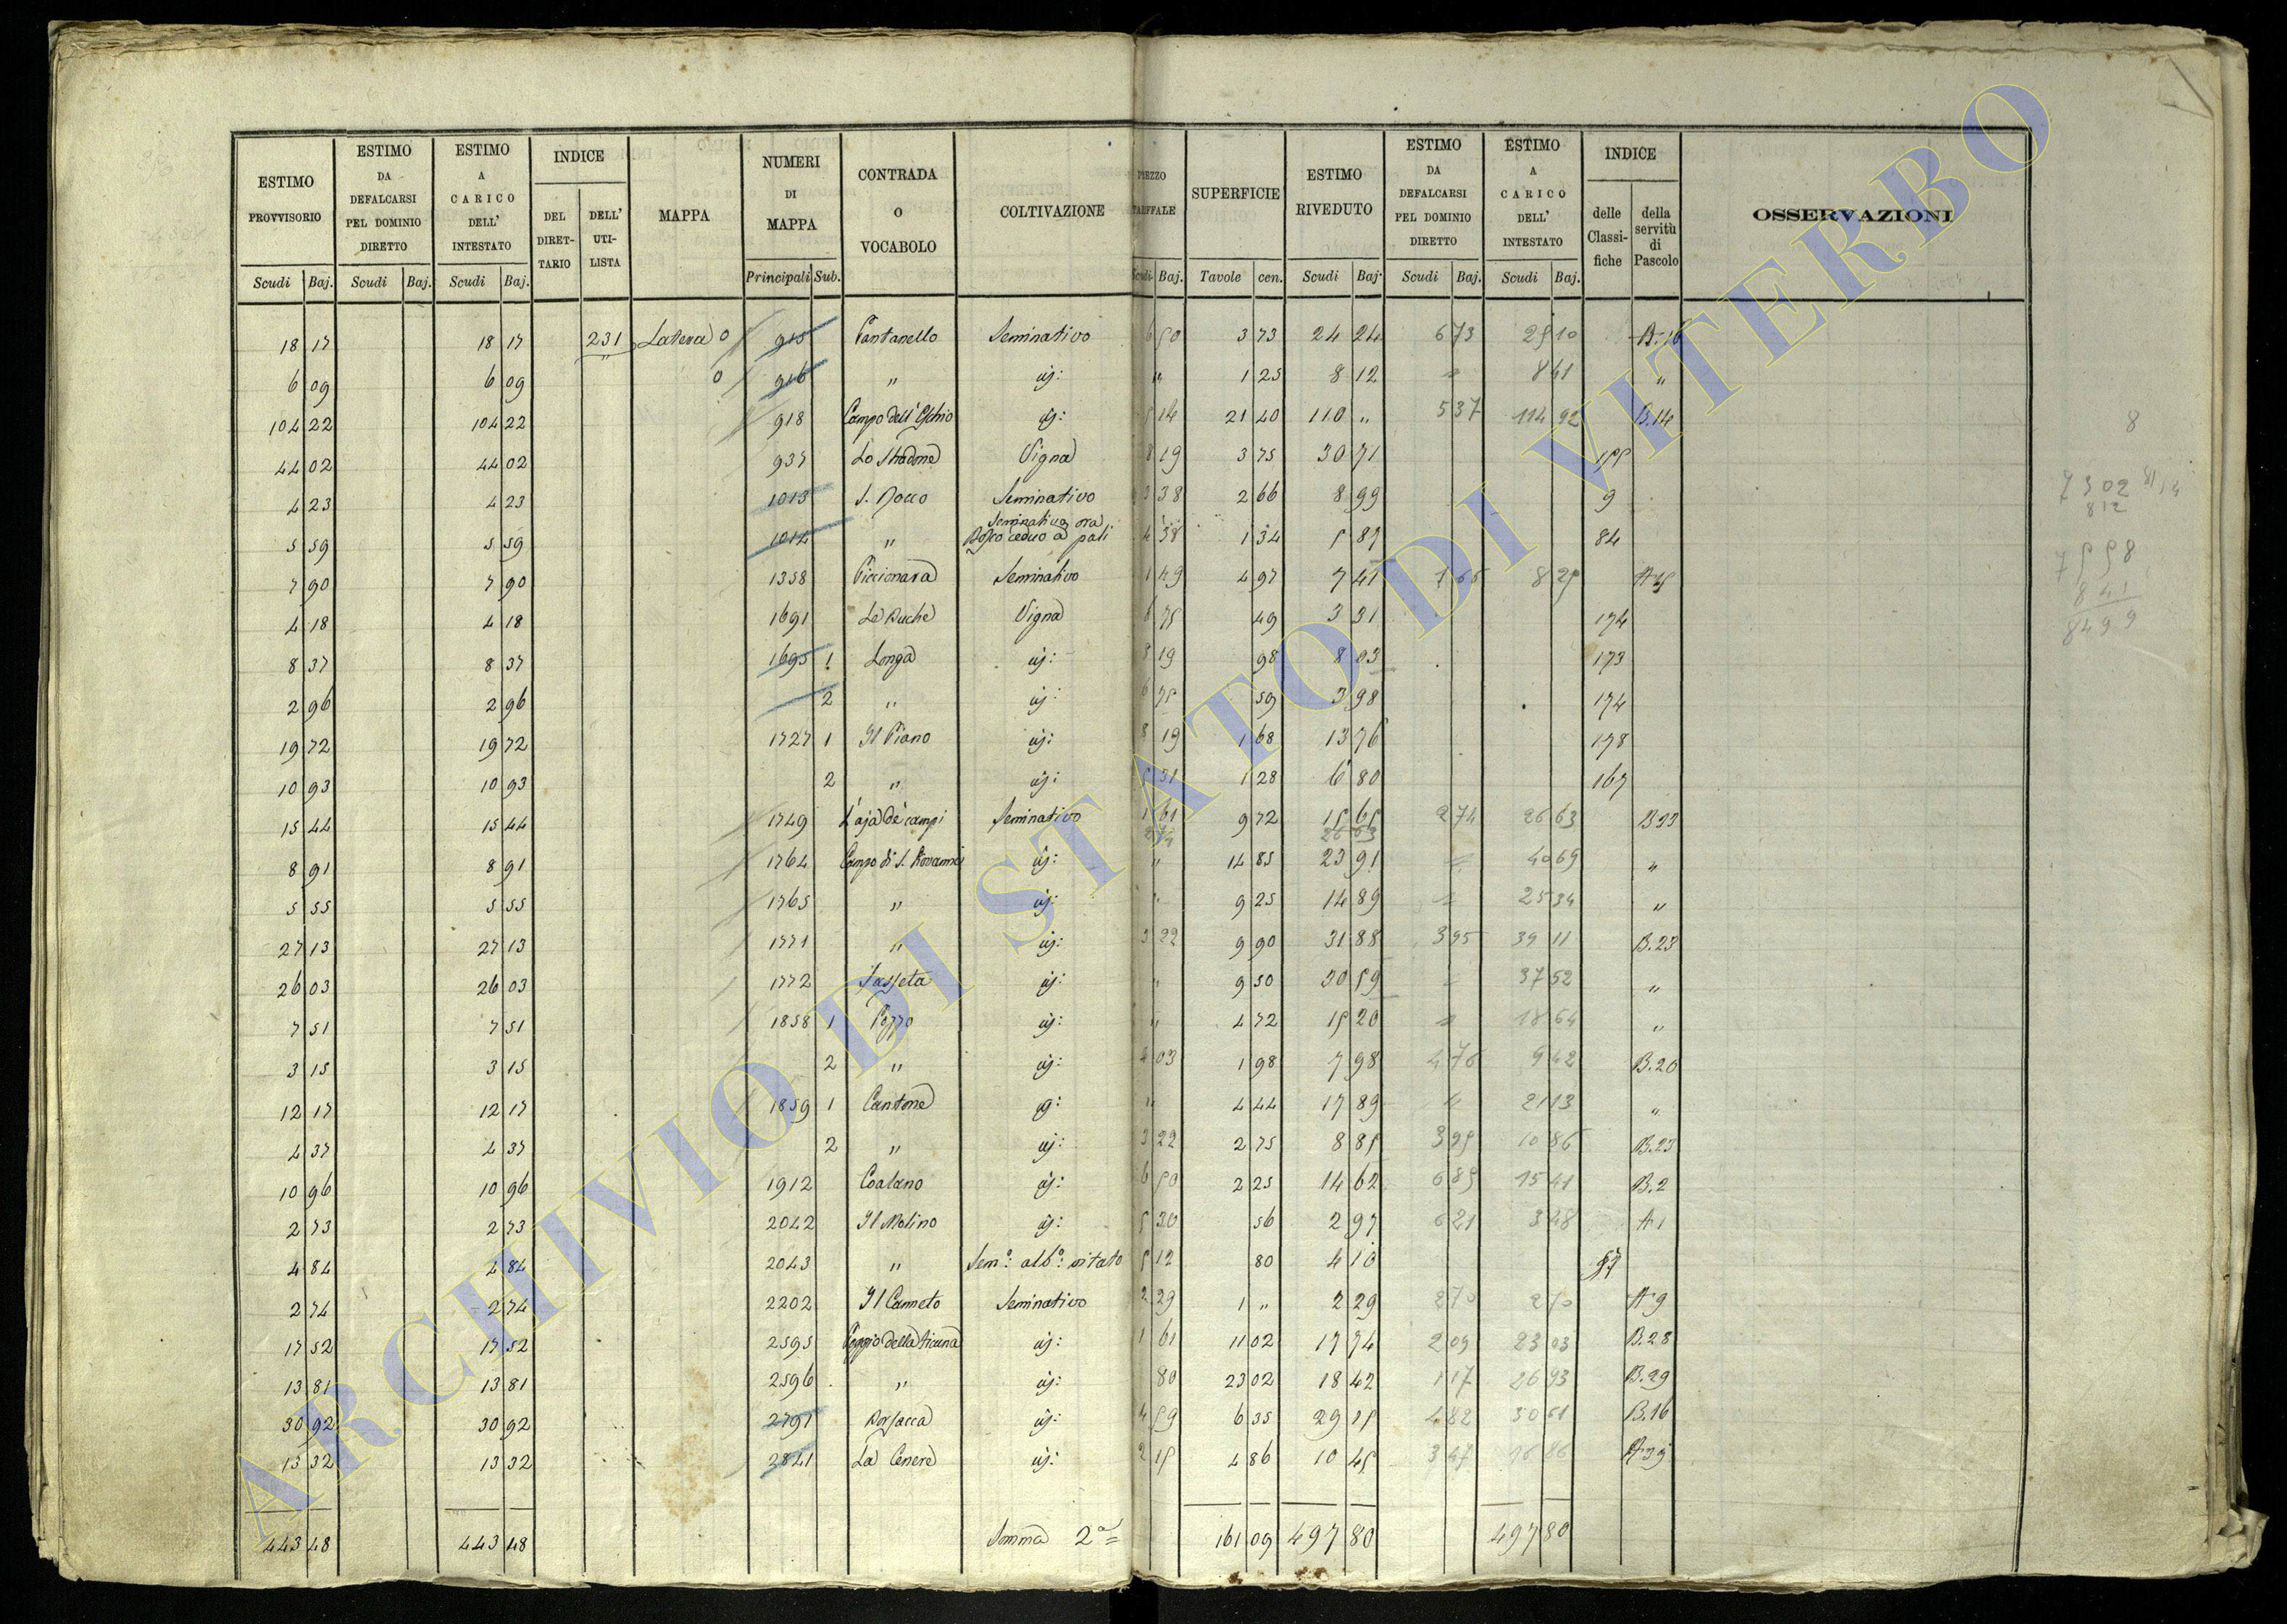 ESTIMO PROVVISORIO | ESTIMO DA DEFALCARSI PEL DOMINIO DIRETTO | ESTIMO A CARICO DELL' INTESTATO | INDICE | MAPPA | NUMERI DI MAPPA | CONTRADA O VOCABOLO | COLTIVAZIONE | SUPERFICIE | ESTIMO RIVEDUTO | ESTIMO DA DEFALCARSI PEL DOMINIO DIRETTO | ESTIMO A CARICO DELL' INTESTATO | INDICE | OSSERVAZIONI
DEL DIRETTARIO | DELL' UTILISTA | delle Classifiche | della servitù di Pascolo
Scudi | Baj. | Scudi | Baj. | Scudi | Baj. | Principali | Sub. | Scudi | Baj. | Tavole | cen. | Scudi | Baj. | Scudi | Baj. | Scudi | Baj.
18 17 | 18 17 | 231 | Latera 0 | 915 | Fantanello | Seminativo | 6 50 | 3 73 | 24 24 | 6 73 | 25 10 | B.16
6 09 | 6 09 | 0 | 916 | " | id: | " | 1 25 | 8 12 | 8 41 | "
104 22 | 104 22 | 918 | Campo dell' Eschio | id: | 5 14 | 21 40 | 110 " | 5 37 | 114 92 | B.14
44 02 | 44 02 | 937 | Lo Stradone | Vigna | 8 19 | 3 75 | 30 71 | 155
4 23 | 4 23 | 1013 | S. Rocco | Seminativo | 3 38 | 2 66 | 8 99 | 9
5 59 | 5 59 | 1014 | " | Seminativo ora Bosco ceduo a pali | 4 38 | 1 34 | 5 87 | 84
7 90 | 7 90 | 1358 | Piccionara | Seminativo | 1 49 | 4 97 | 7 41 | 1 65 | 8 25
4 18 | 4 18 | 1691 | Le Buche | Vigna | 6 75 | 49 | 3 31 | 174
8 37 | 8 37 | 1695 | 1 | Longa | id: | 8 19 | 98 | 8 03 | 173
2 96 | 2 96 | 2 | " | id: | 6 75 | 59 | 3 98 | 174
19 72 | 19 72 | 1727 | 1 | Il Piano | id: | 8 19 | 1 68 | 13 76 | 178
10 93 | 10 93 | 2 | " | id: | 5 31 | 1 28 | 6 80 | 167
15 44 | 15 44 | 1749 | L'aja de' campi | Seminativo | 1 61 | 9 72 | 15 65 | 2 74 | 26 63 | B33
2 74 | 26 63
8 91 | 8 91 | 1764 | Campo di S. Giovanni | id: | " | 14 85 | 23 91 | 40 69 | "
5 55 | 5 55 | 1765 | " | id: | " | 9 25 | 14 89 | 25 34 | "
27 13 | 27 13 | 1771 | " | id: | 3 22 | 9 90 | 31 88 | 3 95 | 39 11 | B.23
26 03 | 26 03 | 1772 | Sasseta | id: | " | 9 50 | 30 59 | 37 52 | "
7 51 | 7 51 | 1858 | 1 | Pozzo | id: | " | 4 72 | 15 20 | 18 64 | "
3 15 | 3 15 | 2 | " | id: | 4 03 | 1 98 | 7 98 | 4 76 | 9 42 | B.20
12 17 | 12 17 | 1859 | 1 | Cantone | id: | " | 4 44 | 17 89 | 21 13 | "
4 37 | 4 37 | 2 | " | id: | 3 22 | 2 75 | 8 85 | 3 95 | 10 86 | B.23
10 96 | 10 96 | 1912 | Coalano | id: | 6 50 | 2 25 | 14 62 | 6 85 | 15 41 | B.2
2 73 | 2 73 | 2042 | Il Molino | id: | 5 30 | 56 | 2 97 | 6 21 | 3 48 | A 1
4 84 | 4 84 | 2043 | " | Sem.º alb.º vitato | 5 12 | 80 | 4 10 | 57
2 74 | 2 74 | 2202 | Il Canneto | Seminativo | 2 29 | 1 " | 2 29 | 2 70 | 2 70 | A 9
17 52 | 17 52 | 2595 | Poggio della | id: | 1 61 | 11 02 | 17 74 | 2 09 | 23 03 | B.28
13 81 | 13 81 | 2596 | " | id: | 80 | 23 02 | 18 42 | 1 17 | 26 93 | B.29
30 92 | 30 92 | 2791 | Borsacca | id: | 4 59 | 6 35 | 29 15 | 4 82 | 30 61 | B.16
13 32 | 13 32 | 2841 | La Cenere | id: | 2 15 | 4 86 | 10 45 | 3 47 | 16 86 | A 35
443 48 | 443 48 | Somma 2ª | 161 09 | 497 80 | 497 80
8
7302
812
7558
841
8499
ARCHIVIO DI STATO DI VITERBO